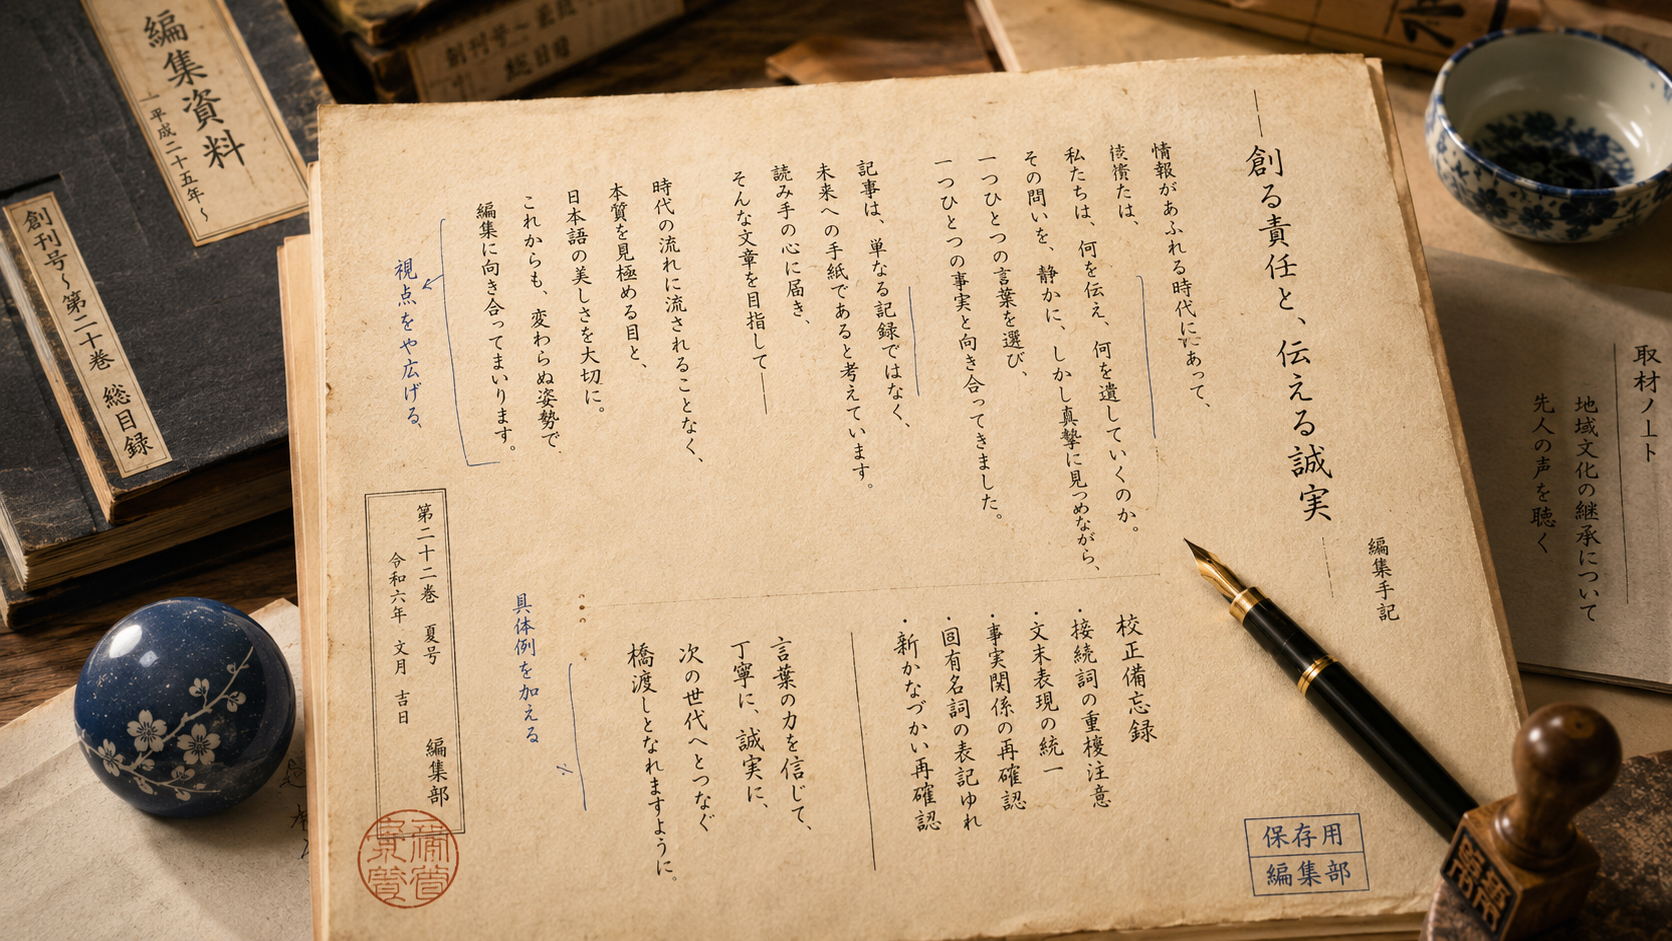 編集手記
― 創る責任と、伝える誠実 ―
情報があふれる時代にあって、
私たちは、何を伝え、何を遺していくのか。
その問いを、静かに、しかし真摯に見つめながら、
一つひとつの言葉を選び、
一つひとつの事実と向き合ってきました。
記事は、単なる記録ではなく、
未来への手紙であると考えています。
読み手の心に届き、
そんな文章を目指して――
時代の流れに流されることなく、
本質を見極める目と、
日本語の美しさを大切に。
これからも、変わらぬ姿勢で
編集に向き合ってまいります。
視点をや広げる、
校正備忘録
・接続詞の重複注意
・文末表現の統一
・事実関係の再確認
・固有名詞の表記ゆれ
・新かなづかい再確認
言葉の力を信じて、
丁寧に、誠実に、
次の世代へとつなぐ
橋渡しとなれますように。
具体例を加える
第二十二巻 夏号 編集部
令和六年 文月 吉日
保存用
編集部
取材ノート
地域文化の継承について
先人の声を聴く
編集資料
平成二十五年～
創刊号～第二十巻 総目録
総目録